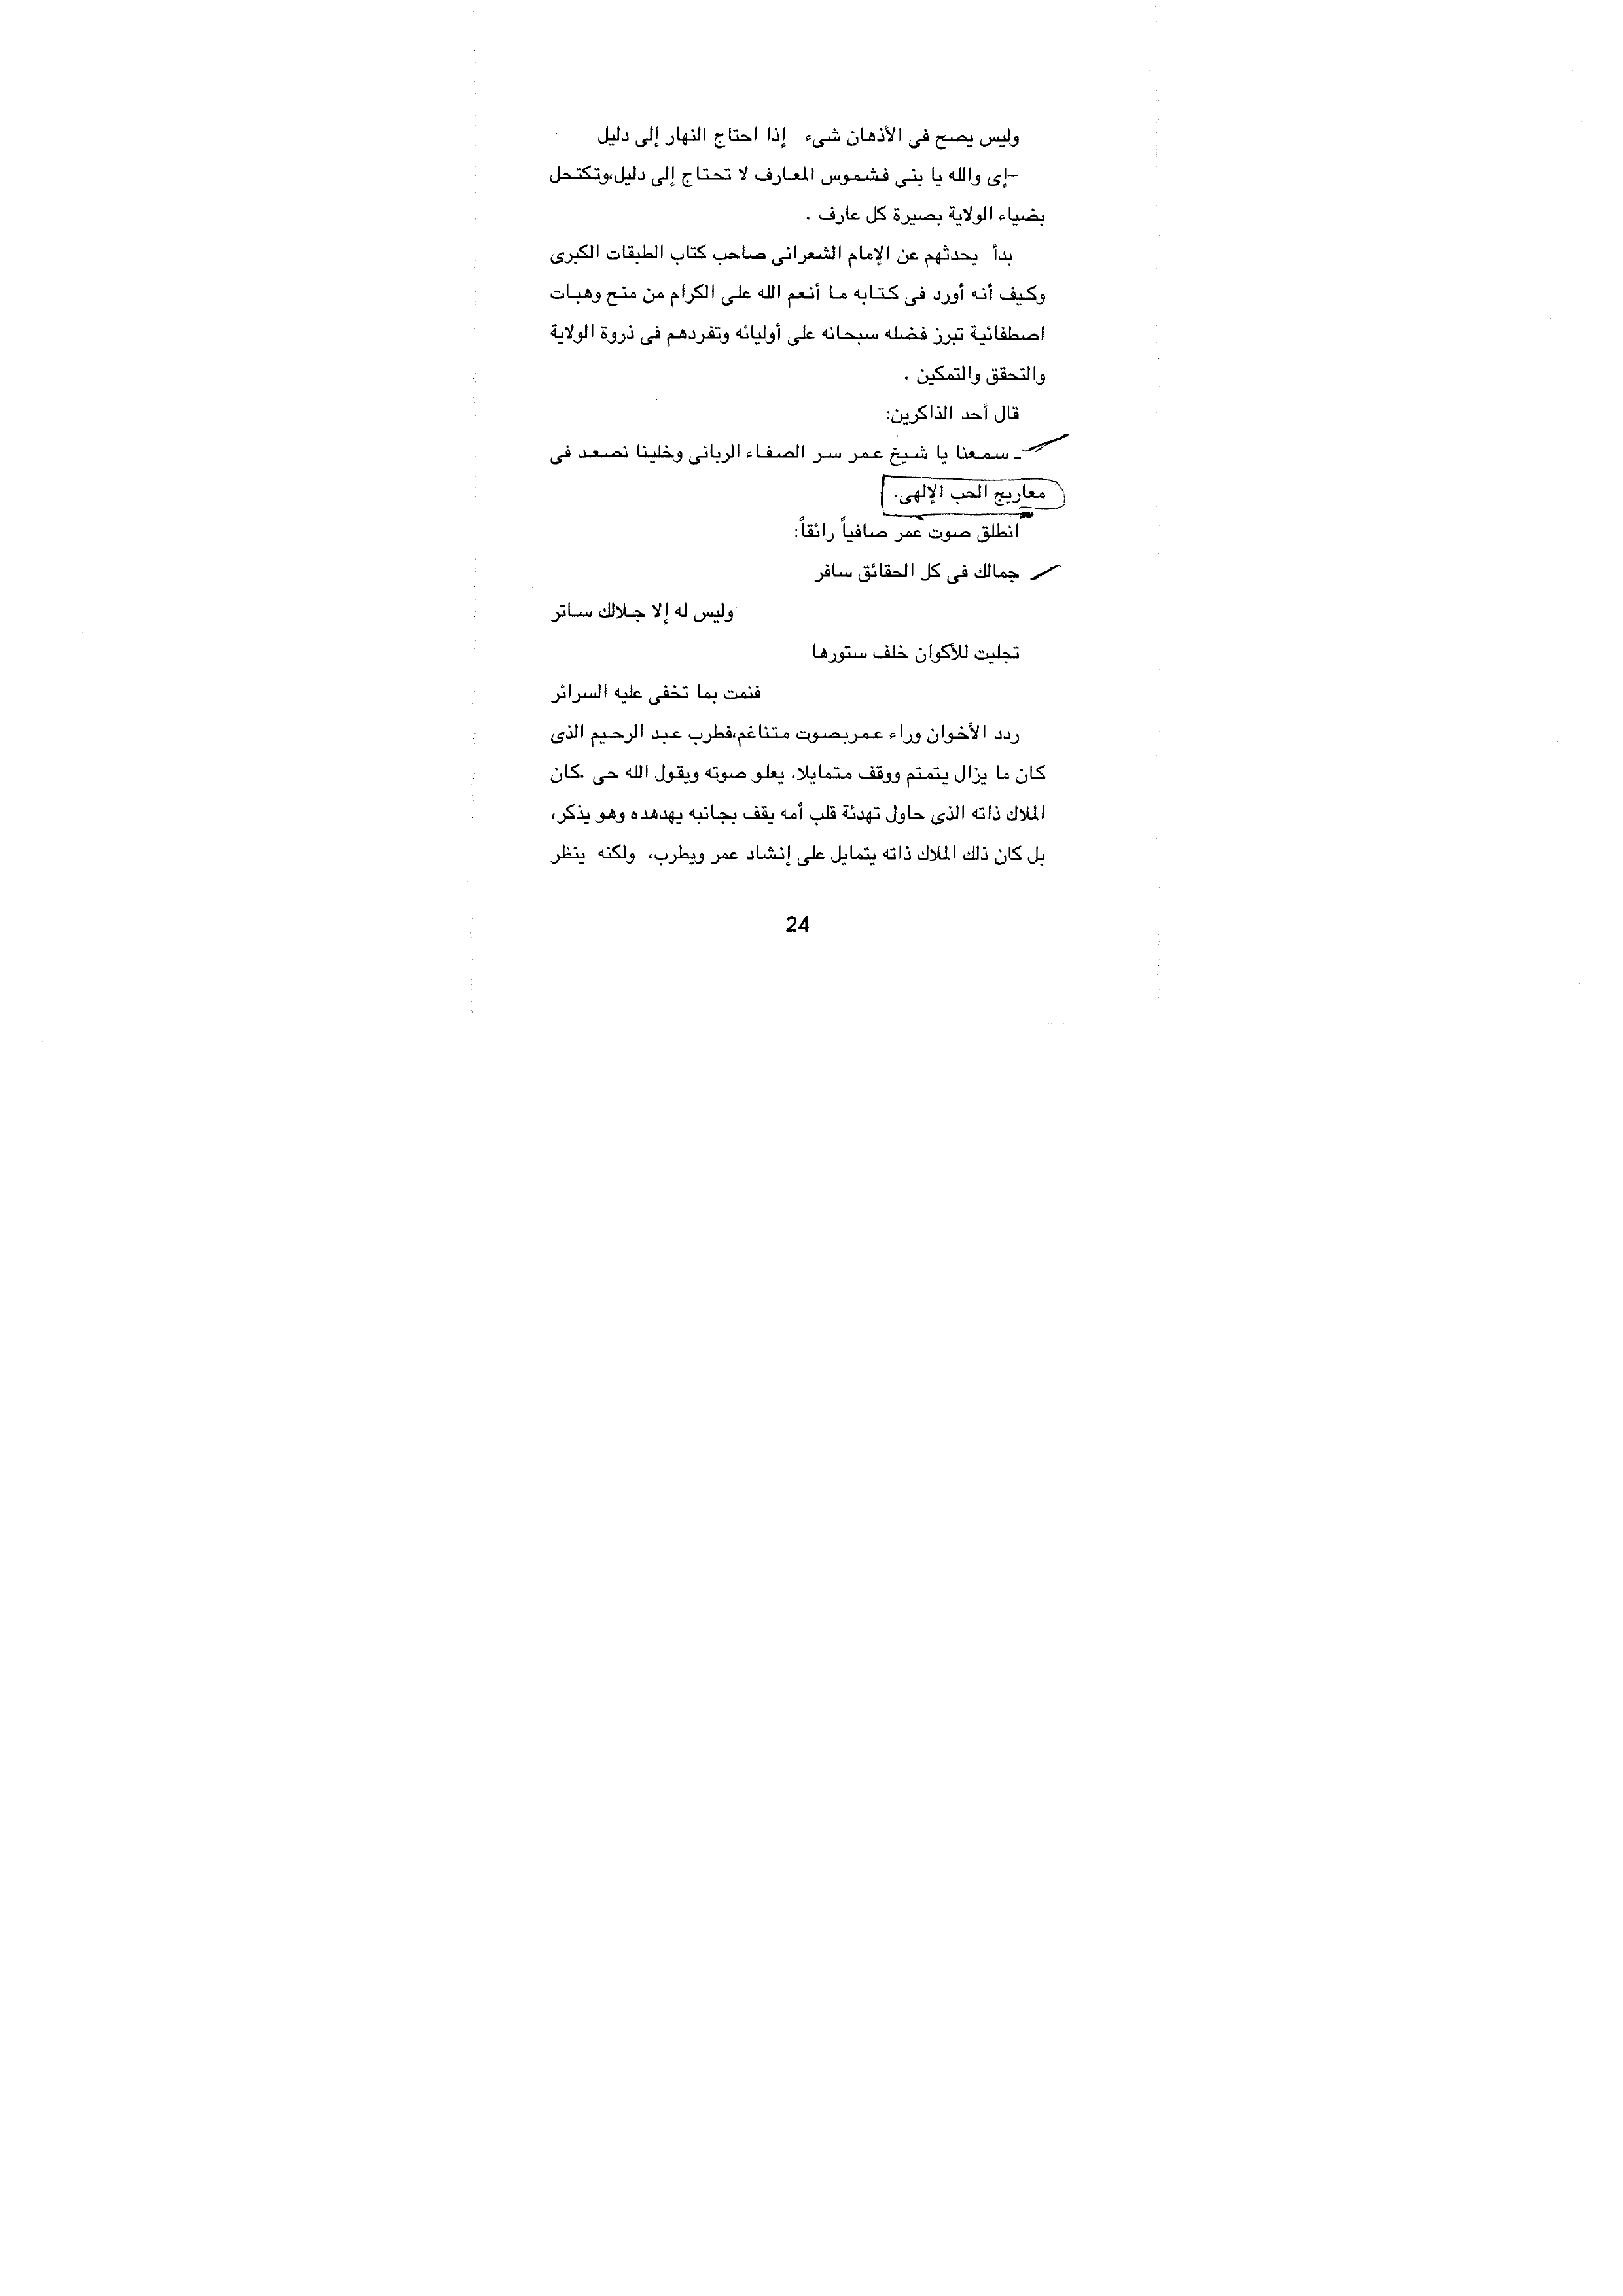 وليس يصح فى الأذهان شىء إذا احتاج النهار إلى دليل
-إى والله يا بنى فشموس المعارف لا تحتاج إلى دليل،وتكتحل
بضياء الولاية بصيرة كل عارف .
بدأ يحدثهم عن الإمام الشعرانى صاحب كتاب الطبقات الكبرى
وكيف أنه أورد فى كتابه ما أنعم الله على الكرام من منح وهبات
اصطفائية تبرز فضله سبحانه على أوليائه وتفردهم فى ذروة الولاية
والتحقق والتمكين .
قال أحد الذاكرين:
ـ سمعنا يا شيخ عمر سر الصفاء الربانى وخلينا نصعد فى
معاريج الحب الإلهى.
انطلق صوت عمر صافياً رائقاً:
جمالك فى كل الحقائق سافر
وليس له إلا جلالك ساتر
تجليت للأكوان خلف ستورها
فنمت بما تخفى عليه السرائر
ردد الأخوان وراء عمربصوت متناغم،فطرب عبد الرحيم الذى
كان ما يزال يتمتم ووقف متمايلا. يعلو صوته ويقول الله حى .كان
الملاك ذاته الذى حاول تهدئة قلب أمه يقف بجانبه يهدهده وهو يذكر،
بل كان ذلك الملاك ذاته يتمايل على إنشاد عمر ويطرب، ولكنه ينظر
24